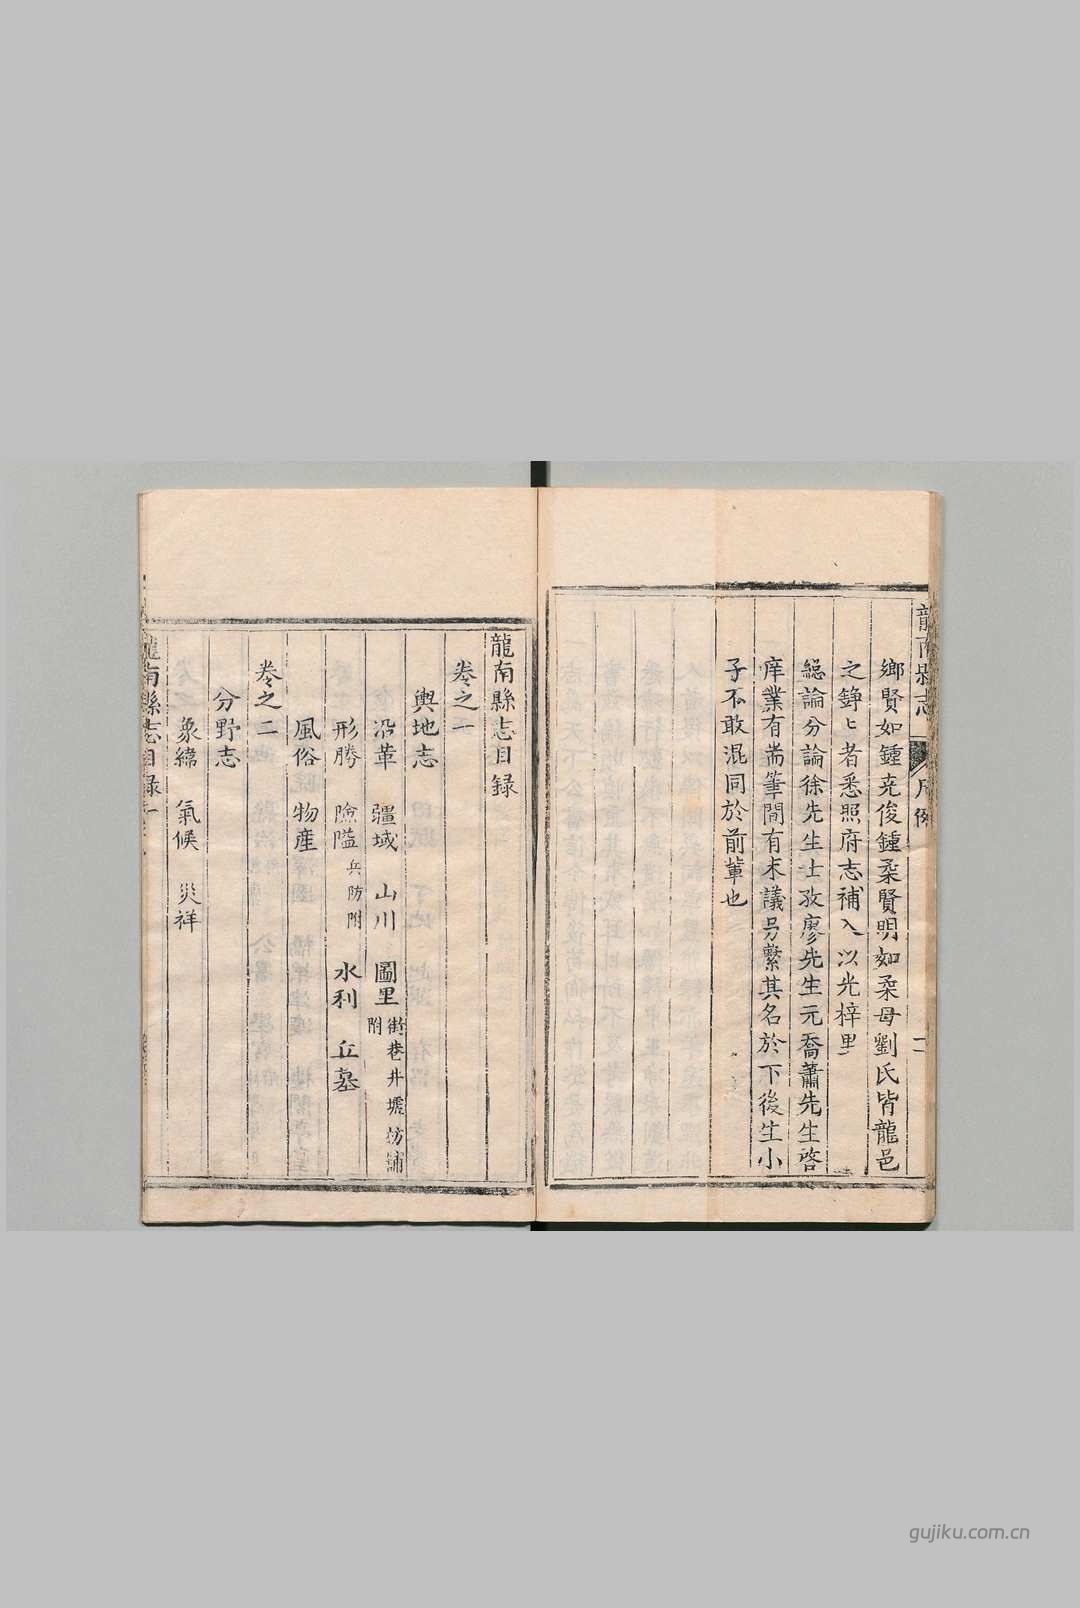 鄉賢如鍾堯俊鍾柔賢明如柔母劉氏皆龍邑
之錚〻者悉照府志補入以光梓里
總論分論徐先生士孜廖先生元喬蕭先生啓
庠業有耑筆間有末議另繫其名於下後生小
子不敢混同於前輩也
龍南縣志目録
卷之一
輿地志
沿革 疆域 山川 圖里 街巷井墟坊舖附
形勝 險隘 兵防附 水利 丘墓
風俗 物産
卷之二
分野志
象緯 氣候 災祥
龍南縣志目録
gujiku.com.cn